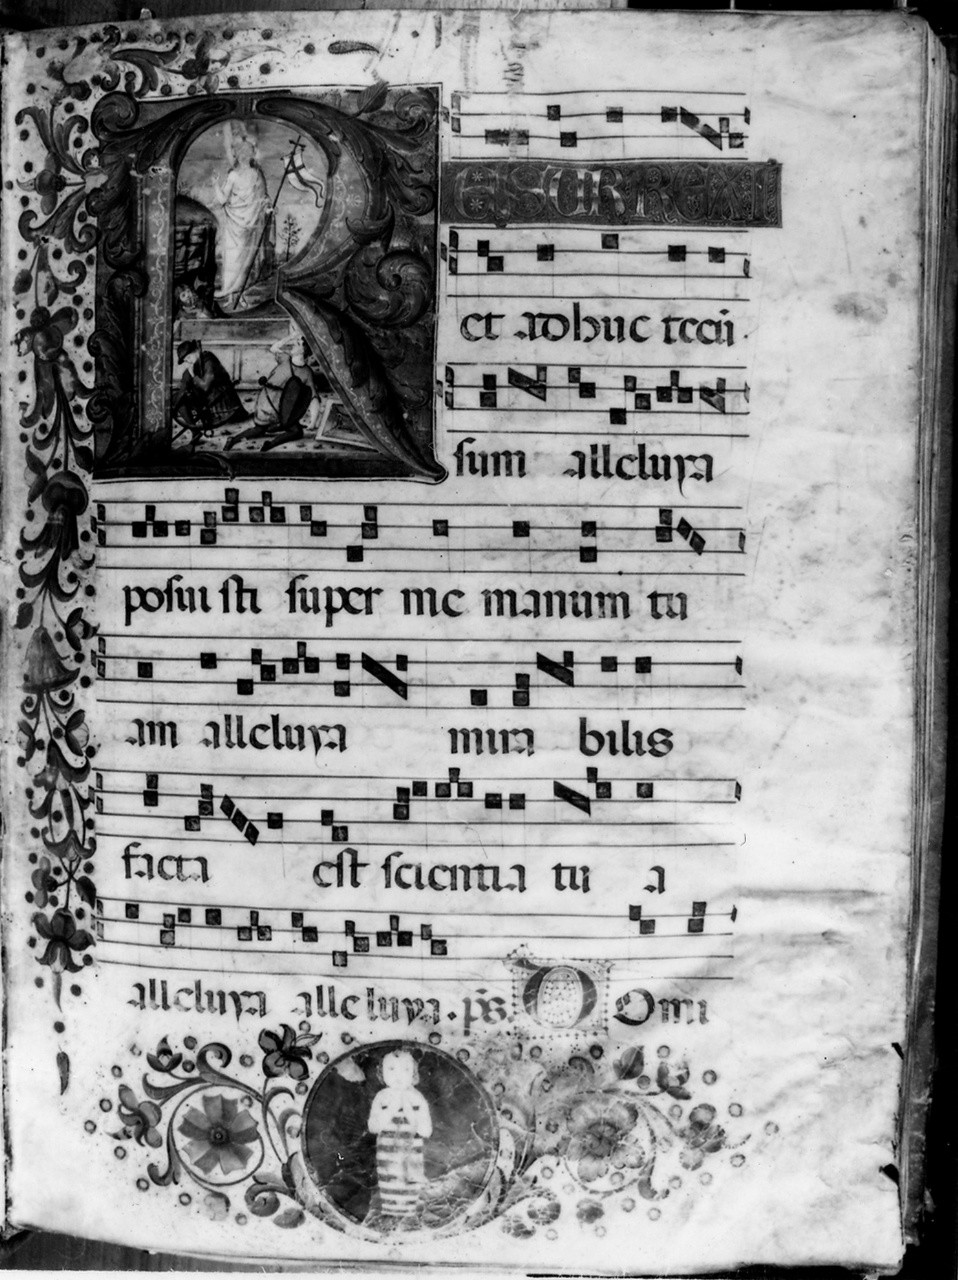 RESURREXI
et adhuc tecu
sum alleluya
posui sti super me manum tu
am alleluya mira bilis
facta est scientia tu a
alleluya alleluya. ps. D Omi